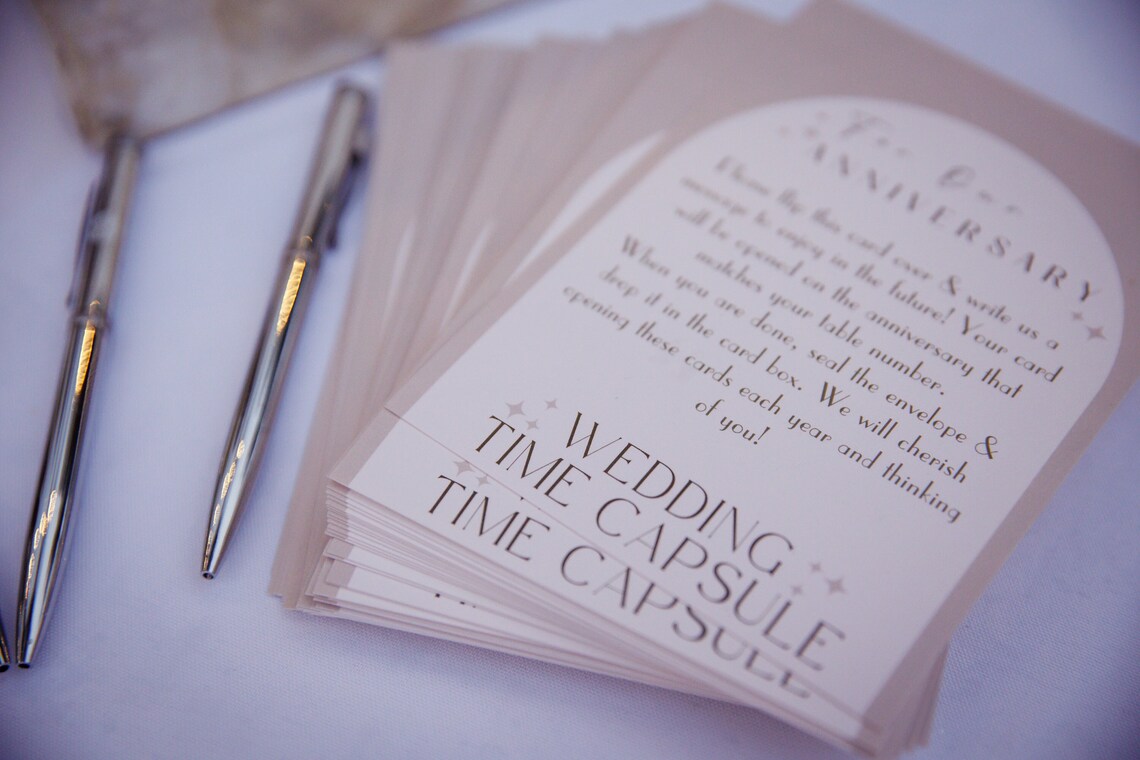 For Our
ANNIVERSARY
Please flip this card over & write us a
message to enjoy in the future! Your card
will be opened on the anniversary that
matches your table number.
When you are done, seal the envelope &
drop it in the card box. We will cherish
opening these cards each year and thinking
of you!
WEDDING
TIME CAPSULE
TIME CAPSULE